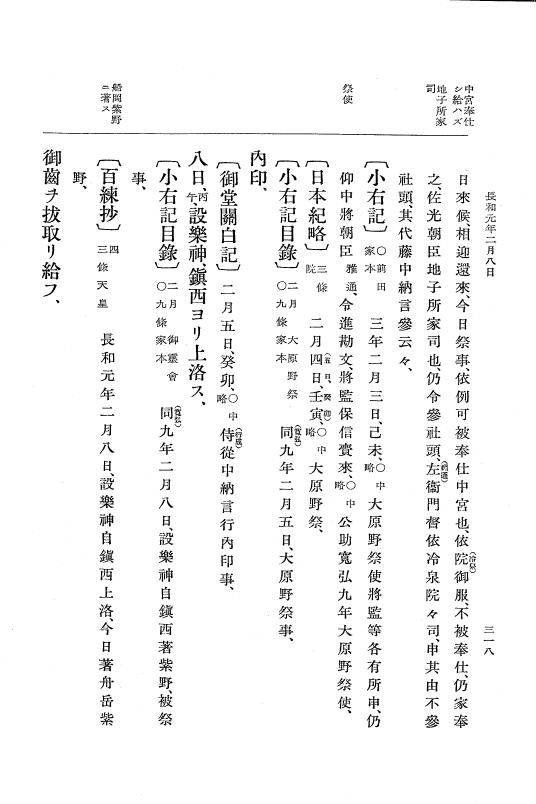 長和元年二月八日
三一八
中宮奉仕
シ給ハズ
地子所家
司
祭使
船岡紫野
ニ著ス
日來候、相迎還來、今日祭事、依例可被奉仕中宮也、依院(冷泉)御服、不被奉仕、仍家奉
之、佐光朝臣地子所家司也、仍令參社頭、左衞門督依冷泉院々司、申其由不參
社頭、其代藤中納言參云々、
〔小右記〕 ○前田家本 三年二月三日、己未、○中略 大原野祭使將監等各有所申、仍
仰中將朝臣 雅通、令進勘文、將監保信賷來、○中略 公助寬弘九年大原野祭使、
〔日本紀略〕 三條院 二月四日、(五日、癸卯)壬寅、○中略 大原野祭、
〔小右記目錄〕 二月 大原野祭 ○九條家本 同(寬弘)九年二月五日、大原野祭事、
內印、
〔御堂關白記〕 二月五日、癸卯、○中略 侍從中納言(行成)行內印事、
八日、丙午、設樂神、鎭西ヨリ上洛ス、
〔小右記目錄〕 二月 御靈會 ○九條家本 同(寬弘)九年二月八日、設樂神自鎭西著紫野、被祭
事、
〔百練抄〕 四 三條天皇 長和元年二月八日、設樂神自鎭西上洛、今日著舟岳紫
野、
御齒ヲ拔取リ給フ、